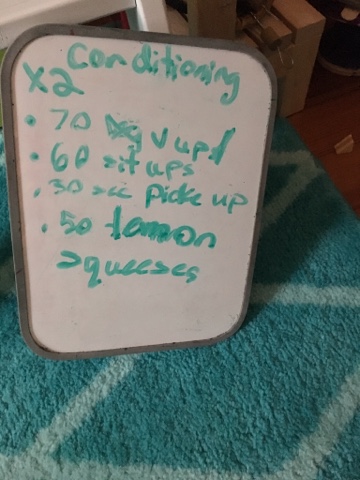 Conditioning
x2
• 70 V ups
• 60 sit ups
• 30 sec pick up
• 50 lemon
squeeses